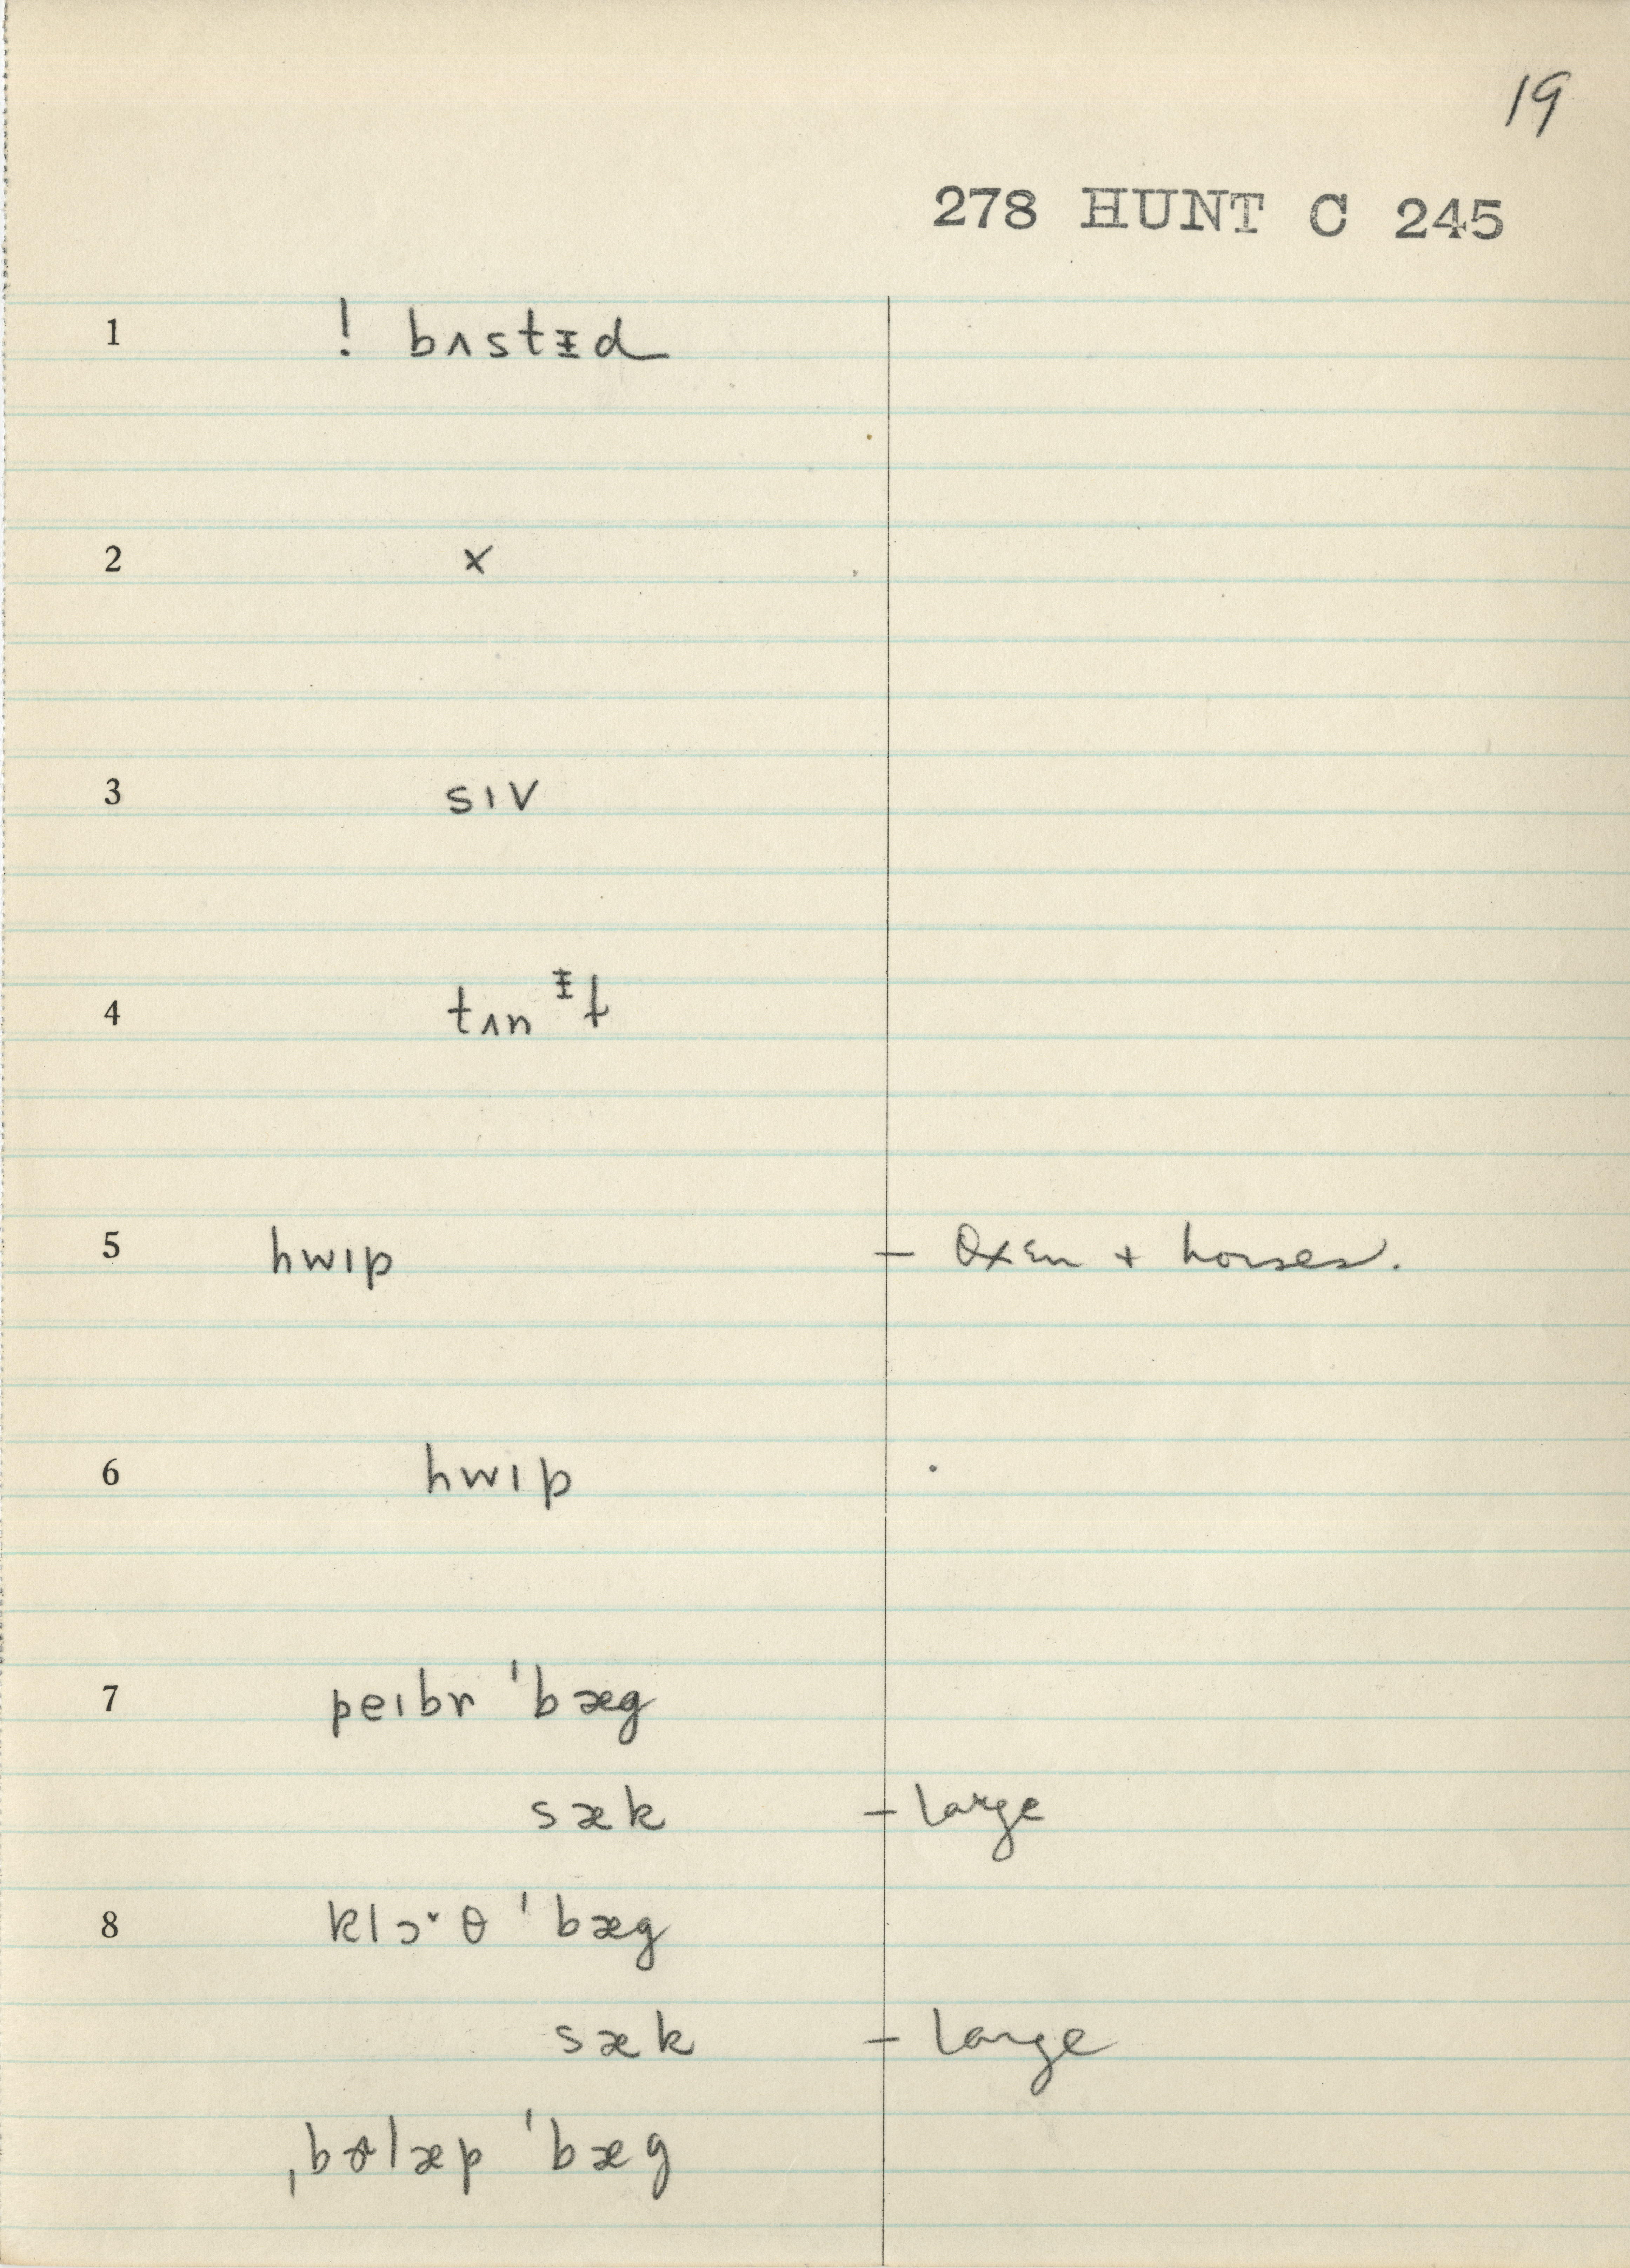 19
278 HUNT C 245
1 ! bʌstᵻd
2 x
3 sɪv
4 tʌnᵻɫ
5 hwɪp — Oxen + horses.
6 hwɪp
7 peɪbr ˈbæg
sæk — large
8 klɔˇθ ˈbæg
sæk — large
ˌbɚlæp ˈbæg